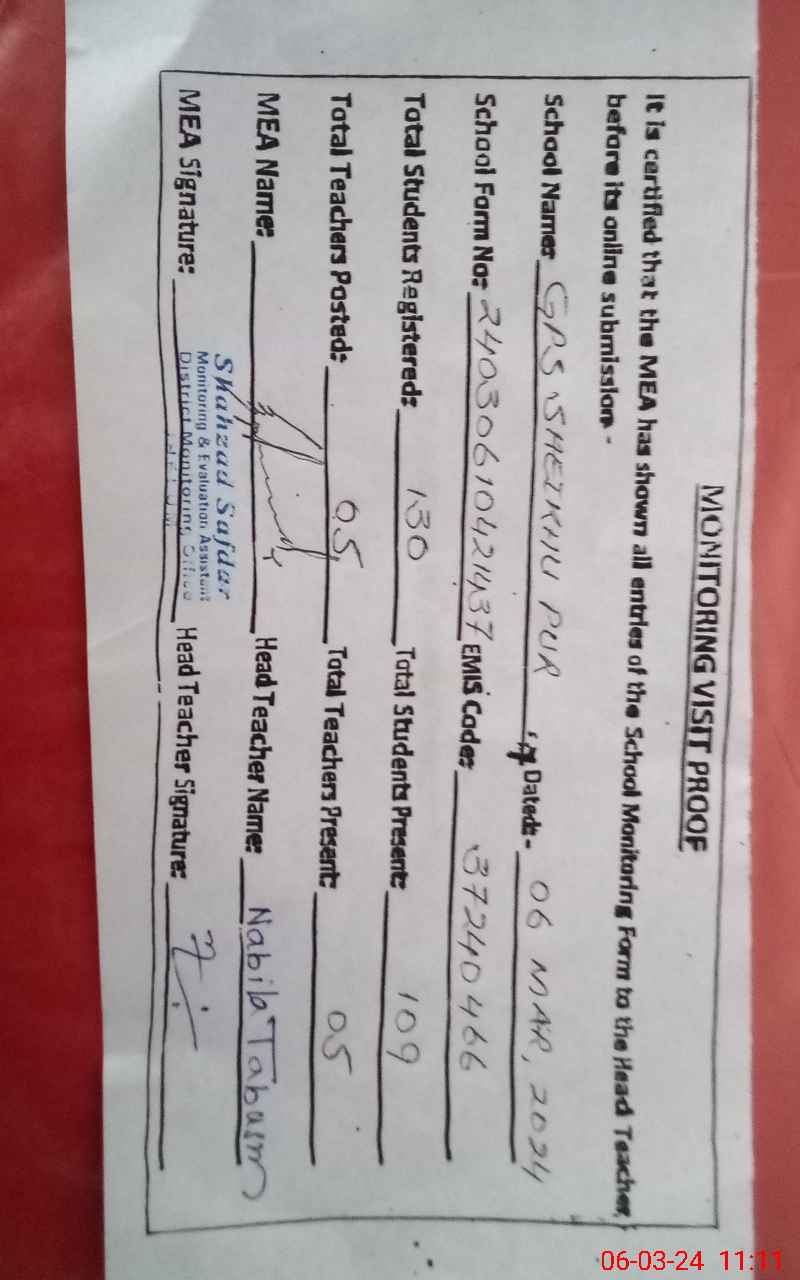 MONITORING VISIT PROOF
It is certified that the MEA has shown all entries of the School Monitoring Form to the Head Teacher,
before its online submission.-
School Name: GPS SHEIKHU PUR Dated:- 06 MAR, 2024
School Form No: 24030610421437 EMIS Code: 37240466
Total Students Registered: 130 Total Students Present: 109
Total Teachers Posted: 05 Total Teachers Present: 05
MEA Name: Head Teacher Name: Nabila Tabasm
Shahzad Safdar
Monitoring & Evaluation Assistant
District Monitoring Office
MEA Signature: Head Teacher Signature:
06-03-24 11:11